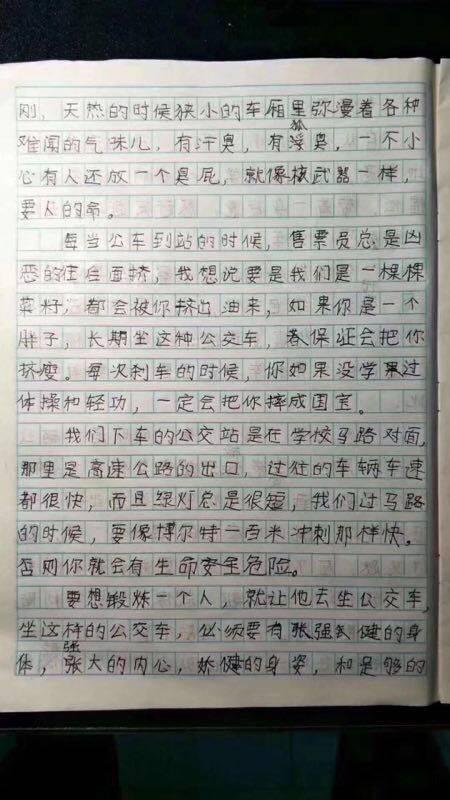 刚，天热的时候狭小的车厢里弥漫着各种
难闻的气味儿，有汗臭，有狐臭，一不小
心有人还放一个臭屁，就像核武器一样，
要人的命。
每当公车到站的时候，售票员总是凶
恶的往后面挤，我想说要是我们是一棵棵
菜籽，都会被你挤出油来，如果你是一个
胖子，长期坐这种公交车，春保证会把你
挤瘦。每次刹车的时候，你如果没学果过
体操和轻功，一定会把你摔成国宝。
我们下车的公交站是在学校马路对面，
那里是高速公路的出口，过往的车辆车速
都很快，而且绿灯总是很短，我们过马路
的时候，要像博尔特一百米冲刺那样快。
否则你就会有生命安全危险。
要想锻炼一个人，就让他去坐公交车，
坐这样的公交车，必须要有强健的身
体，强大的内心，娇健的身姿，和足够的